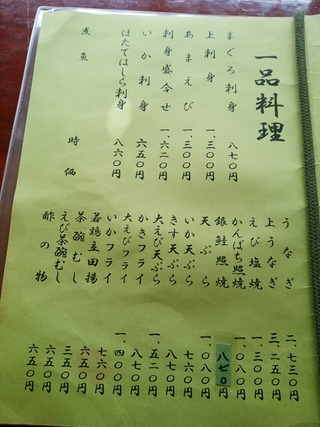 一品料理
まぐろ刺身 八七〇円
上刺身 一、三〇〇円
あまえび 一、三〇〇円
刺身盛合せ 一、六二〇円
いか刺身 六五〇円
ほたてはしら刺身 八六〇円
煮魚 時価
うなぎ 二、七三〇円
上うなぎ 三、二五〇円
えび塩焼 一、三〇〇円
かんぱち照焼 一、〇八〇円
銀鮭照焼 八七〇円
天ぷら 一、〇八〇円
いか天ぷら 七六〇円
きす天ぷら 八七〇円
大えび天ぷら 一、五二〇円
かきフライ 八七〇円
大えびフライ 一、四〇〇円
いかフライ 七六〇円
若鶏立田揚 六五〇円
茶碗むし 三五〇円
えび茶碗むし 六五〇円
酢の物 六五〇円